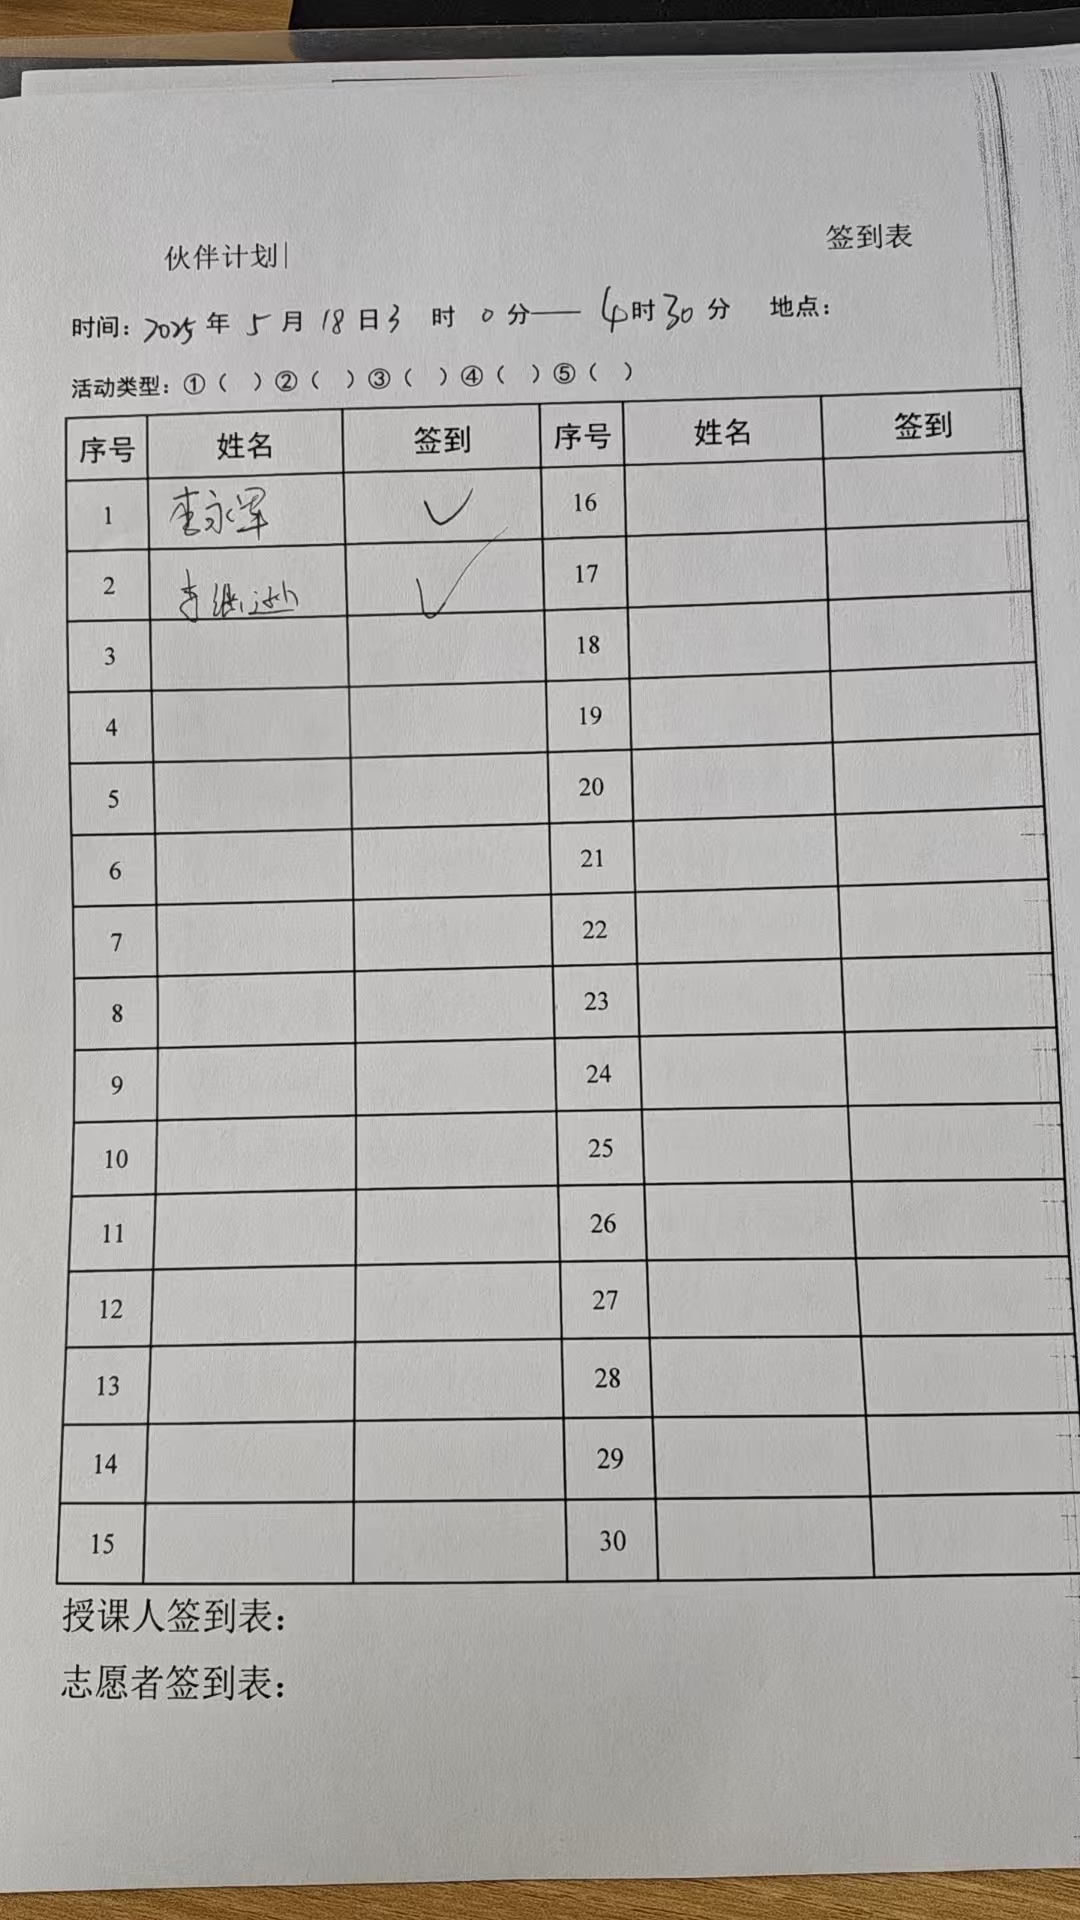 伙伴计划 签到表
时间：2025年 5月 18日3 时 0分——4时30分 地点：
活动类型：①（ ）②（ ）③（ ）④（ ）⑤（ ）
序号 姓名 签到 序号 姓名 签到
1 李永军 ✓ 16
2 李 ✓ 17
3 18
4 19
5 20
6 21
7 22
8 23
9 24
10 25
11 26
12 27
13 28
14 29
15 30
授课人签到表：
志愿者签到表：